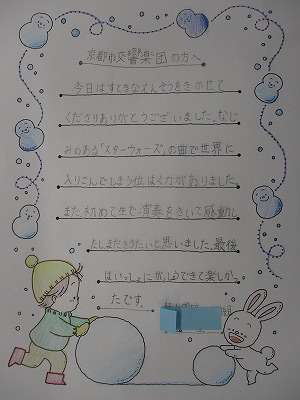 京都市交響楽団の方へ
今日はすてきなえんそうをきかせて
くださりありがとうございました。なじ
みのある「スターウォーズ」の曲で世界に
入りこんでしまう位はく力がありました。
また初めて生で演奏をきいて感動し
たしまたききたいと思いました。最後
はいっしょにがっしょうできて楽しかっ
たです。